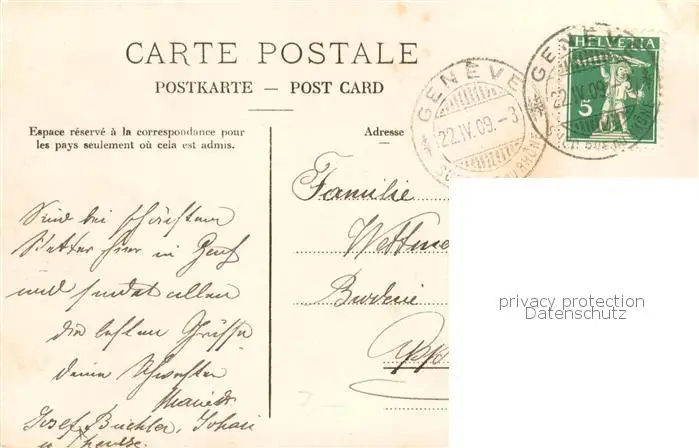 CARTE POSTALE
POSTKARTE — POST CARD
Espace réservé à la correspondance pour
les pays seulement où cela est admis.
Adresse
GENÈVE
22.IV.09.-3
GENÈVE
22.IV.09
HELVETIA
5
Familie
Sind bei schönstem
Wetter hier in Genf
und sendet allen
die besten Grüsse
deine Schwester
Marie
Josef Büchler, Johan
u
App
privacy protection
Datenschutz